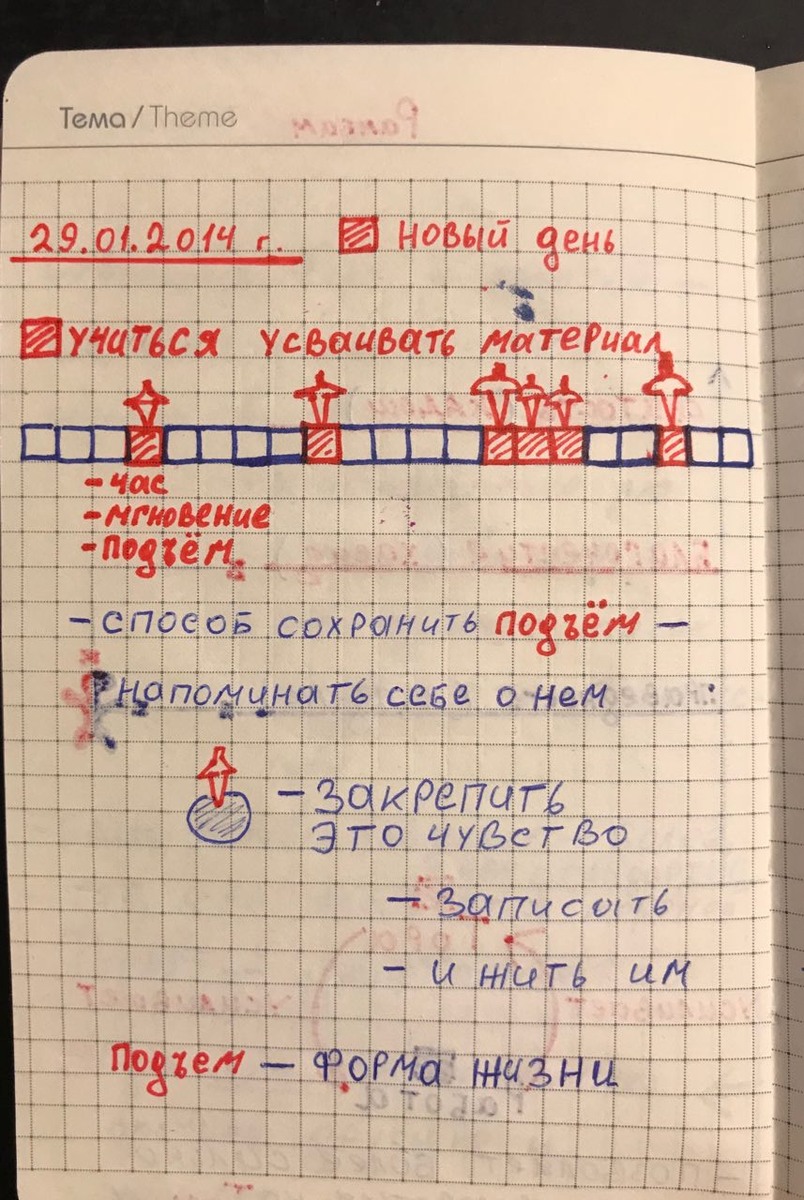 Тема / Theme
29.01.2014 г. новый день
учиться усваивать материал
- час
- мгновение
- подъём
- способ сохранить подъём -
напоминать себе о нем
- закрепить
это чувство
- записать
- и жить им
Подъем - форма жизни